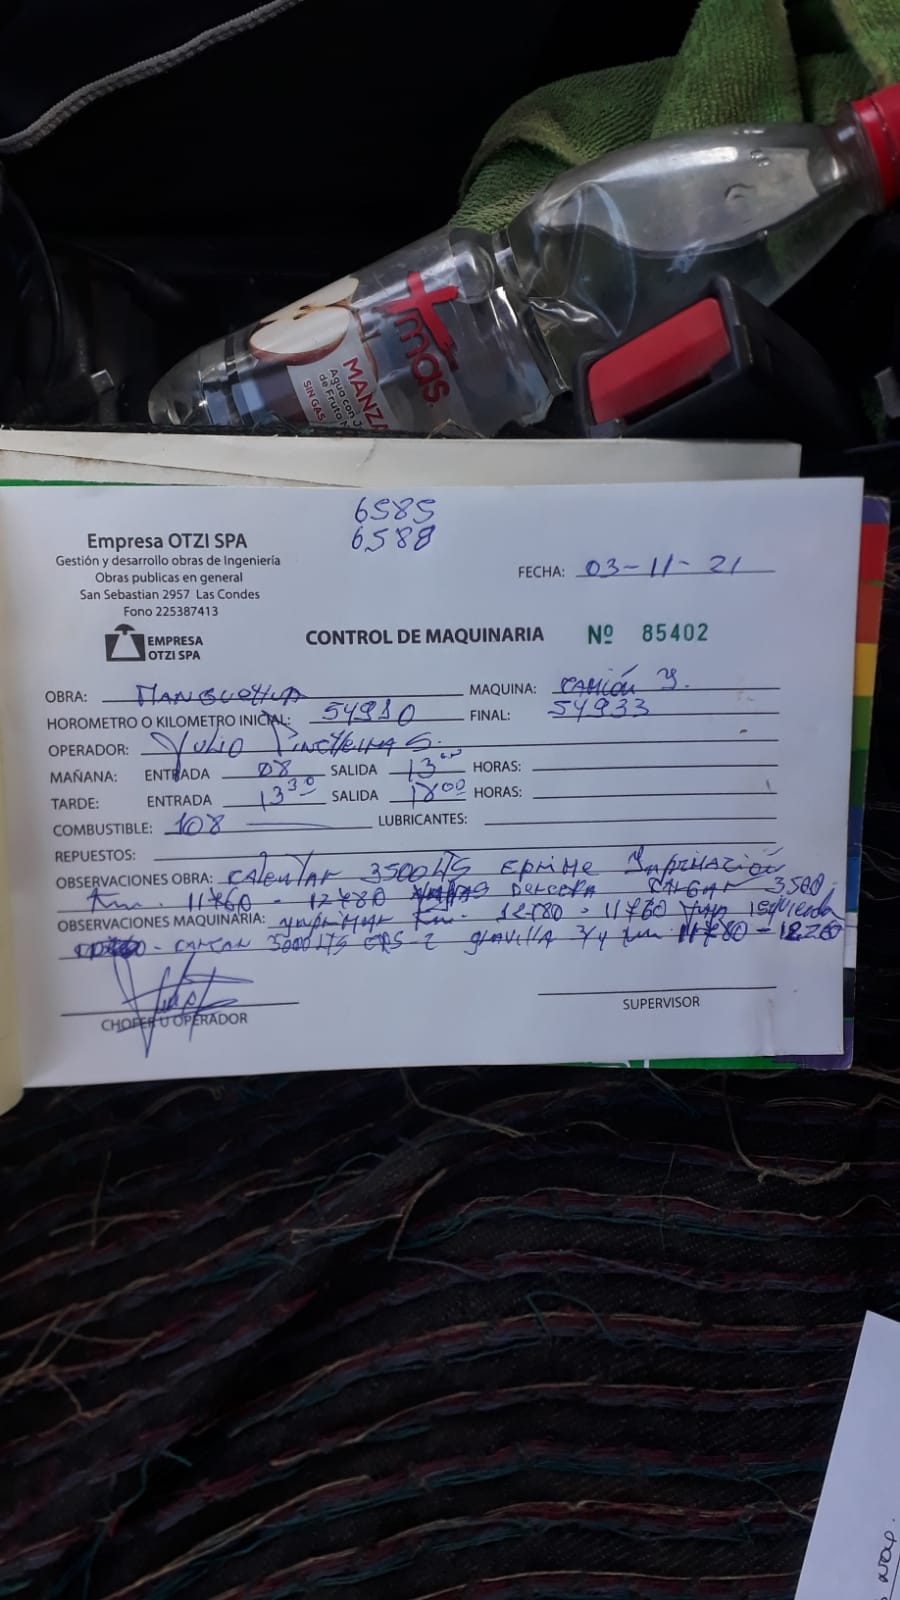 +mas
MANZA
Agua con J
de Fruta
SIN GAS
6585
6588
Empresa OTZI SPA
Gestión y desarrollo obras de Ingeniería
Obras publicas en general
San Sebastian 2957 Las Condes
Fono 225387413
EMPRESA
OTZI SPA
FECHA: 03-11-21
CONTROL DE MAQUINARIA Nº 85402
OBRA: MAQUINA: CAMIÓN I.
HOROMETRO O KILOMETRO INICIAL: 54910 FINAL: 54933
OPERADOR: Julio Pincheira S.
MAÑANA: ENTRADA 08 SALIDA 13⁰⁰ HORAS:
TARDE: ENTRADA 13³⁰ SALIDA 18⁰⁰ HORAS:
COMBUSTIBLE: 108 LUBRICANTES:
REPUESTOS:
OBSERVACIONES OBRA: CALENTAR 3500 LTS IMPRIMACIÓN
Km. 11760 - 12780 CARGAR 3500
OBSERVACIONES MAQUINARIA: Km. 12780 - 11760 IZQUIERDA
3000 LTS CRS-2 GRAVILLA 3/4 Km 11780 - 12260
CHOFER U OPERADOR
SUPERVISOR